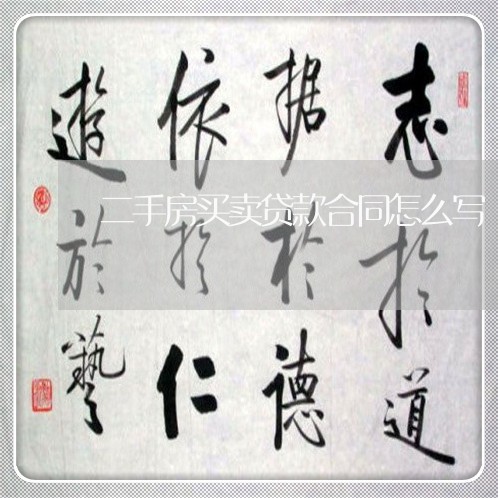 志於道
据於德
依於仁
遊於藝
二手房买卖贷款合同怎么写